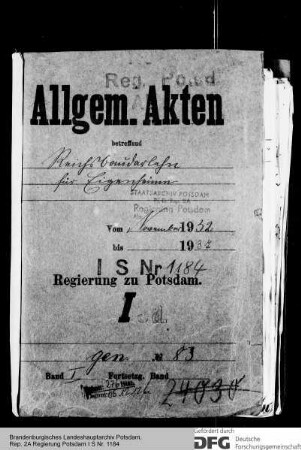 Reg. Potsd
Allgem. Akten
betreffend
Reichsbaudarlehn
für Eigenheime
STAATSARCHIV POTSDAM
Regierung Potsdam
Vom November 1932
bis 193
I S Nr 1184
Regierung zu Potsdam.
I
gen № 83
Band I Fortsetzg. Band
24030
Brandenburgisches Landeshauptarchiv Potsdam,
Rep. 2A Regierung Potsdam I S Nr. 1184
Gefördert durch
DFG Deutsche
Forschungsgemeinschaft